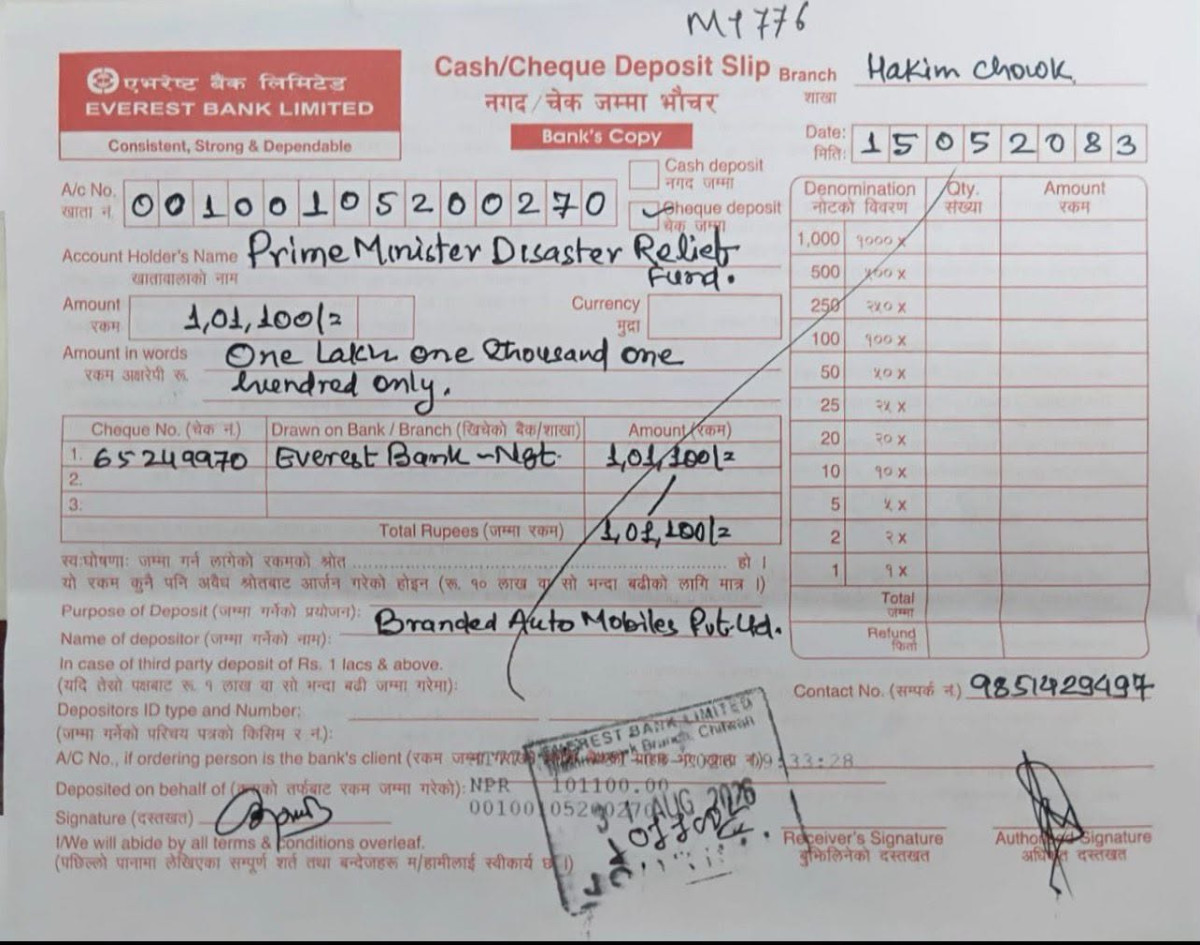 M1776
एभरेष्ट बैंक लिमिटेड
EVEREST BANK LIMITED
Consistent, Strong & Dependable
Cash/Cheque Deposit Slip
नगद/चेक जम्मा भौचर
Bank's Copy
Branch Hakim Chowk
शाखा
Date: 15052083
मिति:
Cash deposit
नगद जम्मा
Cheque deposit
चेक जम्मा
A/c No. 00100105200270
खाता नं.
Account Holder's Name Prime Minister Disaster Relief
खातावालाको नाम Fund.
Amount 1,01,100/=
रकम
Currency
मुद्रा
Amount in words One Lakh one thousand one
रकम अक्षरेपी रू. hundred only.
Cheque No. (चेक नं.) Drawn on Bank / Branch (खिचेको बैंक/शाखा) Amount (रकम)
1. 65249970 Everest Bank - Ngt. 1,01,100/=
2.
3.
Total Rupees (जम्मा रकम) 1,01,100/=
Denomination Qty. Amount
नोटको विवरण संख्या रकम
1,000 १००० x
500 ५०० x
250 २५० x
100 १०० x
50 ५० x
25 २५ x
20 २० x
10 १० x
5 ५ x
2 २ x
1 १ x
Total
जम्मा
Refund
फिर्ता
स्व:घोषणा: जम्मा गर्न लागेको रकमको श्रोत ........ हो ।
यो रकम कुनै पनि अवैध श्रोतबाट आर्जन गरेको होइन (रू. १० लाख वा सो भन्दा बढीको लागि मात्र ।)
Purpose of Deposit (जम्मा गर्नेको प्रयोजन):
Name of depositor (जम्मा गर्नेको नाम): Branded Auto Mobiles Pvt. Ltd.
In case of third party deposit of Rs. 1 lacs & above.
(यदि तेस्रो पक्षबाट रू. १ लाख वा सो भन्दा बढी जम्मा गरेमा):
Contact No. (सम्पर्क नं.) 9851429497
Depositors ID type and Number:
(जम्मा गर्नेको परिचय पत्रको किसिम र नं.):
A/C No., if ordering person is the bank's client (रकम जम्मा
9:33:28
Deposited on behalf of (
को तर्फबाट रकम जम्मा गरेको): NPR 101100.00
Signature (दस्तखत)
EVEREST BANK LIMITED
Branch, Chitwan
AUG 2026
I/We will abide by all terms & conditions overleaf.
(पछिल्लो पानामा लेखिएका सम्पूर्ण शर्त तथा बन्देजहरू म/हामीलाई स्वीकार्य छ ।)
Receiver's Signature
बुझिलिनेको दस्तखत
Authorised Signature
अधिकृत दस्तखत